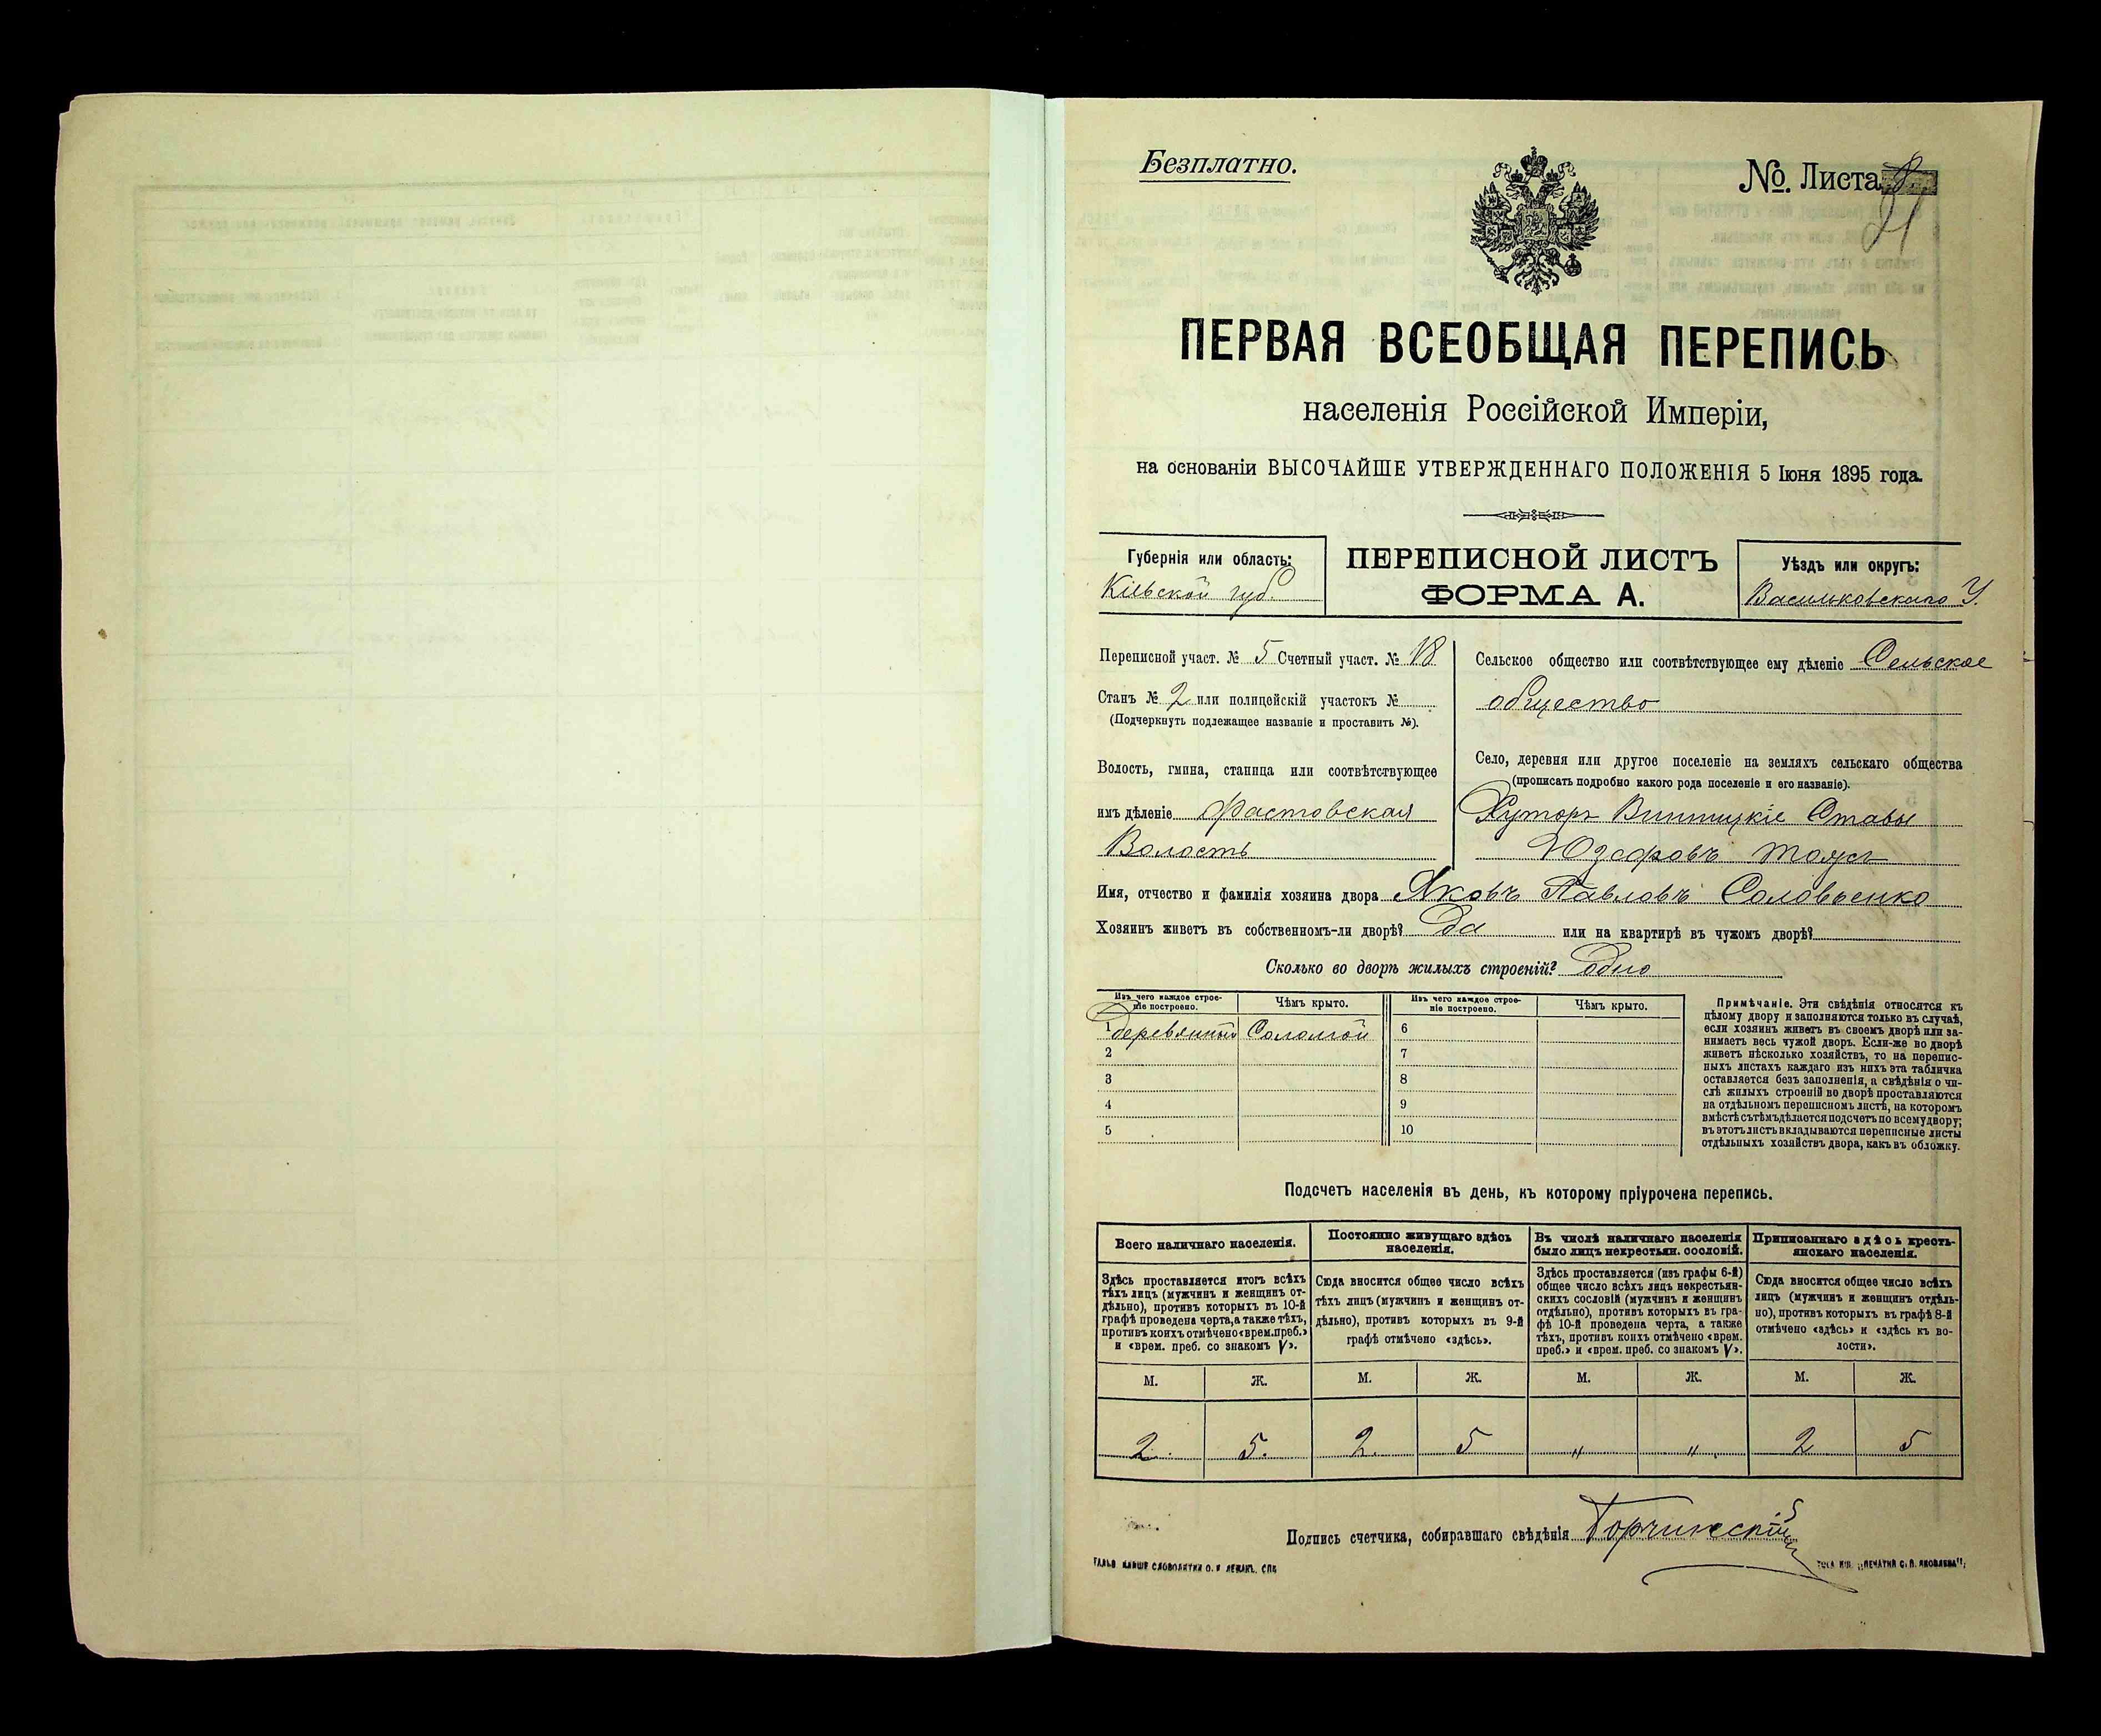 Безплатно.
№ Листа 8.
21
ПЕРВАЯ ВСЕОБЩАЯ ПЕРЕПИСЬ
населенія Россійской Имперіи,
на основаніи ВЫСОЧАЙШЕ УТВЕРЖДЕННАГО ПОЛОЖЕНІЯ 5 Іюня 1895 года.
Губернія или область:
Кіевской губ.
ПЕРЕПИСНОЙ ЛИСТЪ
ФОРМА А.
Уѣздъ или округъ:
Васильковскаго У.
Переписной участ. № 5 Счетный участ. № 18
Станъ № 2 или полицейскій участокъ №
(Подчеркнуть подлежащее названіе и проставить №).
Волость, гмина, станица или соотвѣтствующее
имъ дѣленіе Фастовская
Волость
Сельское общество или соотвѣтствующее ему дѣленіе Сельское
общество
Село, деревня или другое поселеніе на земляхъ сельскаго общества
(прописать подробно какого рода поселеніе и его названіе).
Хуторъ Винницкіе Ставы
Юзефовъ тожъ
Имя, отчество и фамилія хозяина двора Яковъ Павловъ Соловьенко
Хозяинъ живетъ въ собственномъ-ли дворѣ? Да или на квартирѣ въ чужомъ дворѣ?
Сколько во дворѣ жилыхъ строеній? Одно
Изъ чего каждое строе-
ніе построено.
Чѣмъ крыто.
Изъ чего каждое строе-
ніе построено.
Чѣмъ крыто.
1 деревянный Соломой 6
2 7
3 8
4 9
5 10
Примѣчаніе. Эти свѣдѣнія относятся къ
цѣлому двору и заполняются только въ случаѣ,
если хозяинъ живетъ въ своемъ дворѣ или за-
нимаетъ весь чужой дворъ. Если-же во дворѣ
живетъ нѣсколько хозяйствъ, то на перепис-
ныхъ листахъ каждаго изъ нихъ эта табличка
оставляется безъ заполненія, а свѣдѣнія о чи-
слѣ жилыхъ строеній во дворѣ проставляются
на отдѣльномъ переписномъ листѣ, на которомъ
вмѣстѣ съ тѣмъ дѣлается подсчетъ по всему двору;
въ этотъ листъ вкладываются переписные листы
отдѣльныхъ хозяйствъ двора, какъ въ обложку.
Подсчетъ населенія въ день, къ которому пріурочена перепись.
Всего наличнаго населенія.
Здѣсь проставляется итогъ всѣхъ
тѣхъ лицъ (мужчинъ и женщинъ от-
дѣльно), противъ которыхъ въ 10-й
графѣ проведена черта, а также тѣхъ,
противъ коихъ отмѣчено «врем. преб.»
и «врем. преб. со знакомъ V».
Постоянно живущаго здѣсь
населенія.
Сюда вносится общее число всѣхъ
тѣхъ лицъ (мужчинъ и женщинъ от-
дѣльно), противъ которыхъ въ 9-й
графѣ отмѣчено «здѣсь».
Въ числѣ наличнаго населенія
было лицъ некрестьян. сословій.
Здѣсь проставляется (изъ графы 6-й)
общее число всѣхъ лицъ некрестьян-
скихъ сословій (мужчинъ и женщинъ
отдѣльно), противъ которыхъ въ гра-
фѣ 10-й проведена черта, а также
тѣхъ, противъ коихъ отмѣчено «врем.
преб.» и «врем. преб. со знакомъ V».
Приписаннаго здѣсь кресть-
янскаго населенія.
Сюда вносится общее число всѣхъ
лицъ (мужчинъ и женщинъ отдѣль-
но), противъ которыхъ въ графѣ 8-й
отмѣчено «здѣсь» и «здѣсь къ во-
лости».
М. Ж. М. Ж. М. Ж. М. Ж.
2. 5. 2. 5 " " 2 5
Подпись счетчика, собиравшаго свѣдѣнія
СЛОВОЛИТНИ О. И. ЛЕМАНЪ, СПБ
„ПЕЧАТНЯ С. П. ЯКОВЛЕВА"